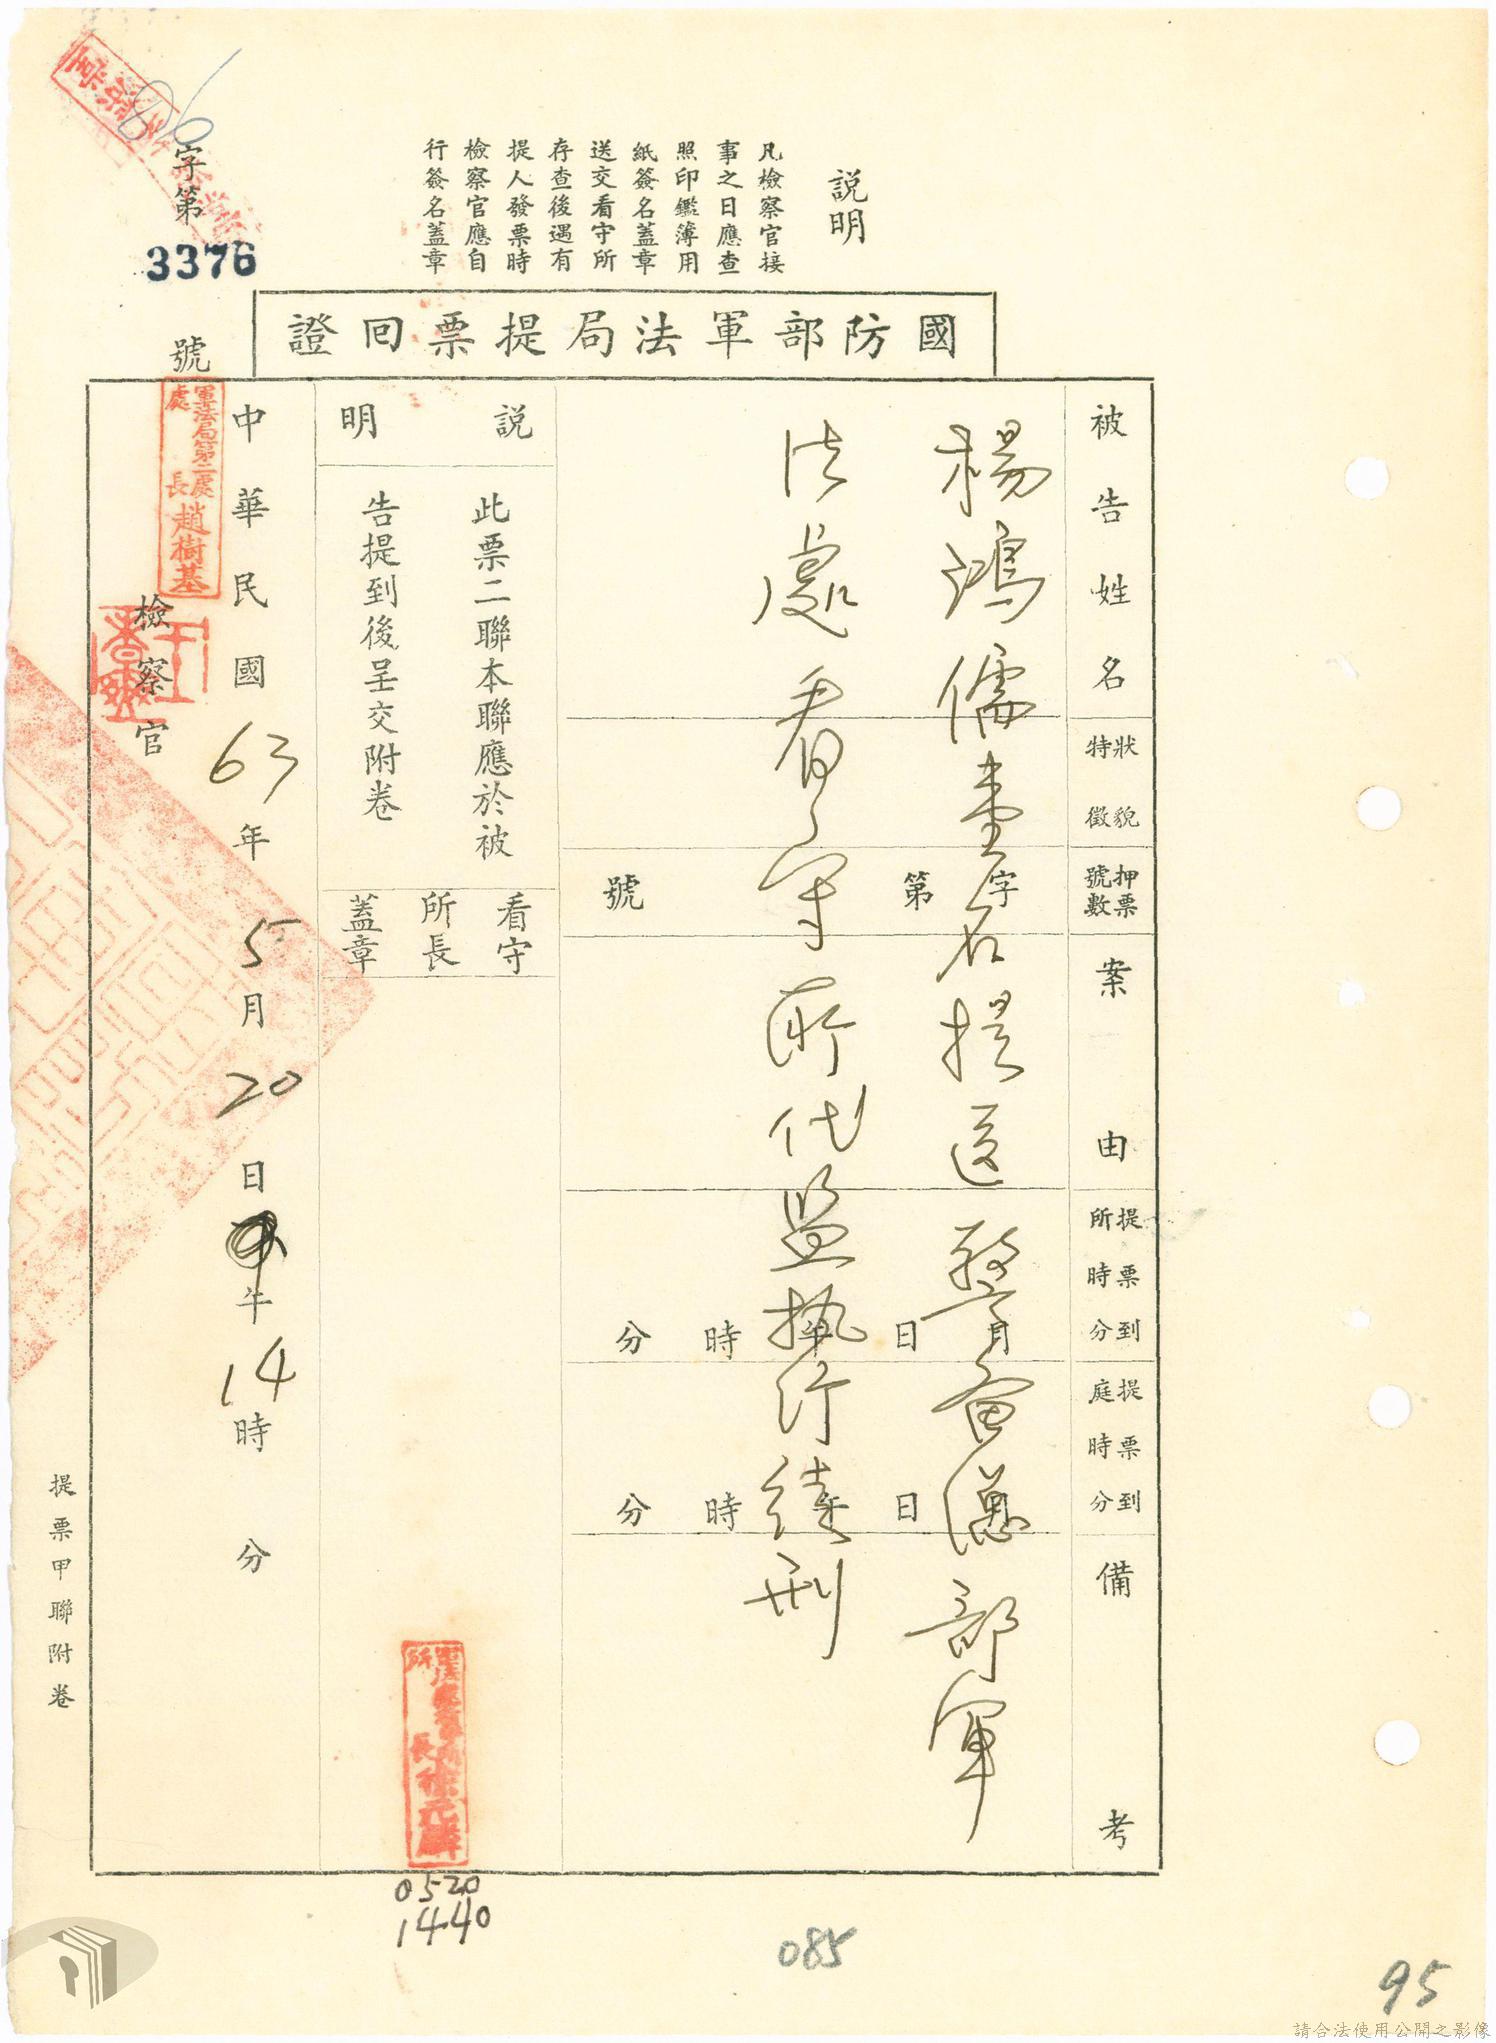 說明
凡檢察官接
事之日應查
照印鑑簿用
紙簽名蓋章
送交看守所
存查後遇有
提人發票時
檢察官應自
行簽名蓋章
字第
3376
號
86
國防部軍法局提票回證
被告姓名
特徵狀貌
押票號數
案由
提票到所時分
提票到庭時分
備考
字第 號
月 日 午 時 分
日 午 時 分
楊鴻儒壹名提送警備總部軍
法處看守所代監執行徒刑
說明
此票二聯本聯應於被
告提到後呈交附卷
看守
所長
蓋章
軍法處看守所所長
0520
1440
中華民國63年5月20日午14時 分
軍法局第二處處長趙樹基
檢察官
提票甲聯附卷
085
95
請合法使用公開之影像